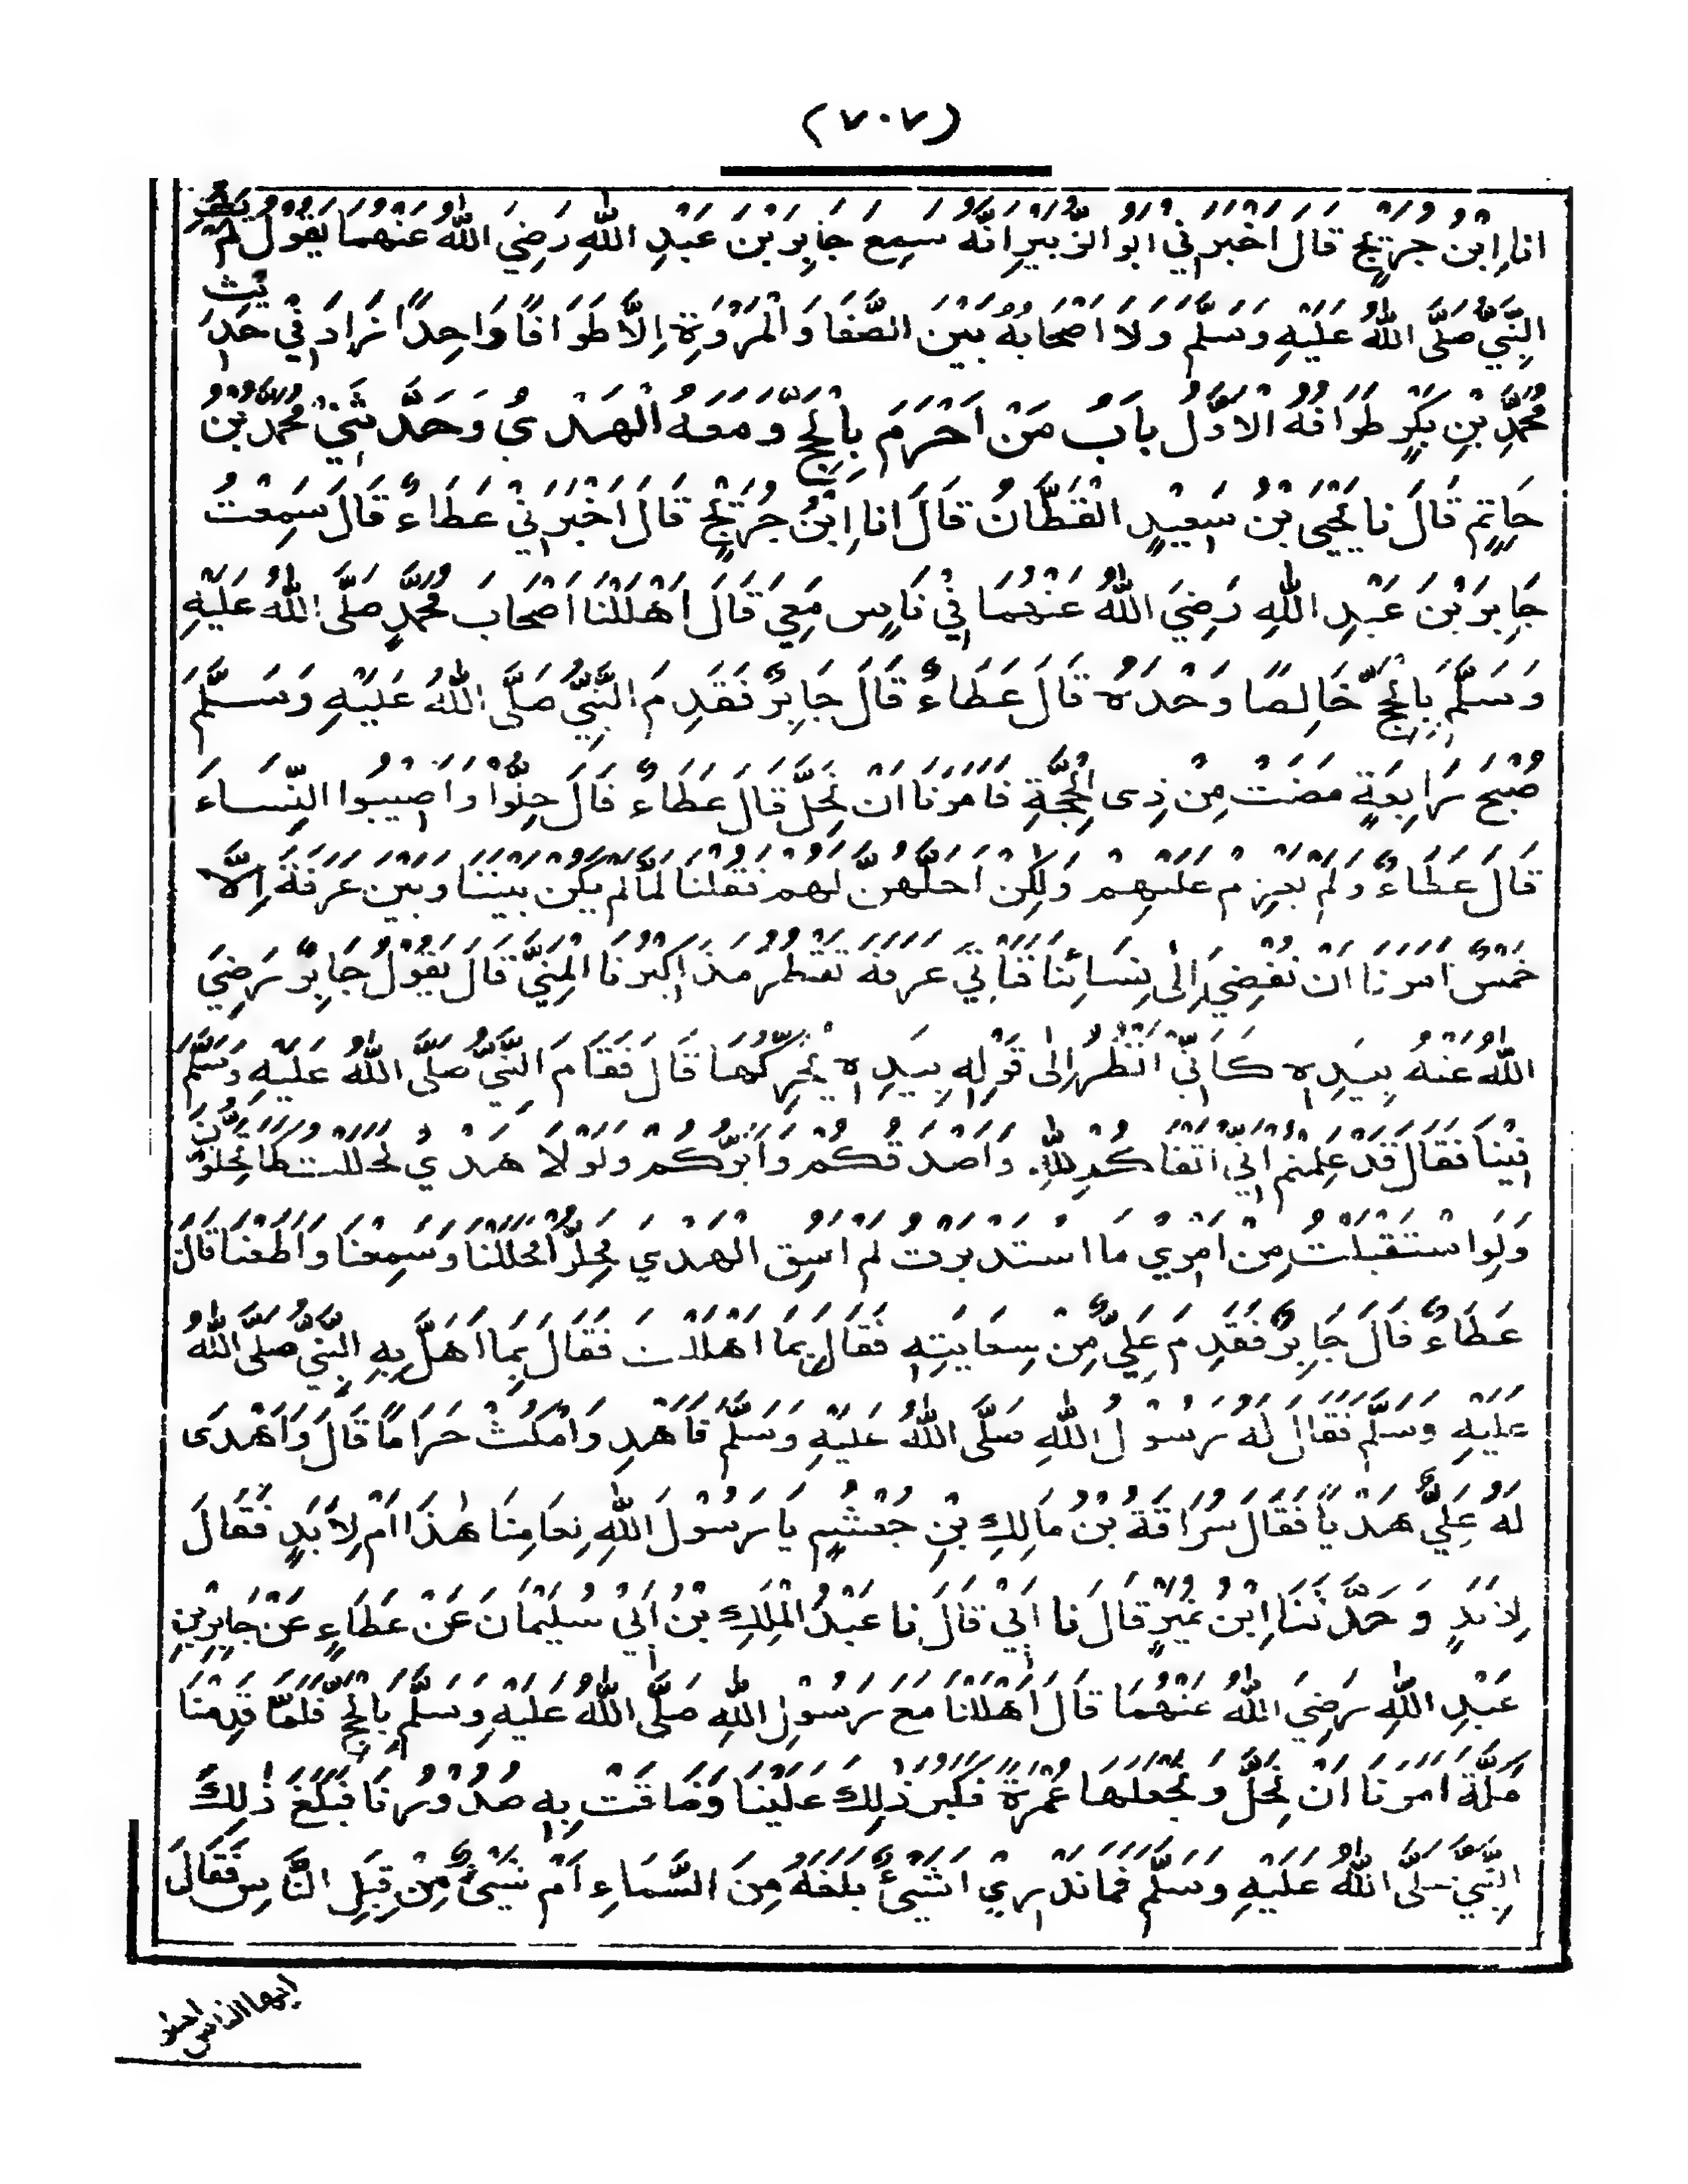 (٧٠٧)
انا اِبْنُ جُرَيْجٍ قَالَ اَخْبَرَنِي اَبُو الزُّبَيْرِ اَنَّهُ سَمِعَ جَابِرَ بْنَ عَبْدِ اللّٰهِ رَضِيَ اللّٰهُ عَنْهُمَا يَقُولُ لَمْ يَطُفِ
النَّبِيُّ صَلَّى اللّٰهُ عَلَيْهِ وَسَلَّمَ وَلَا اَصْحَابُهُ بَيْنَ الصَّفَا وَالْمَرْوَةِ اِلَّا طَوَافًا وَاحِدًا زَادَ فِيْ حَدِيْثِ
مُحَمَّدِ بْنِ بَكْرٍ طَوَافَهُ الْاَوَّلَ بَابُ مَنْ اَحْرَمَ بِالْحَجِّ وَمَعَهُ الْهَدْيُ وَحَدَّثَنِيْ مُحَمَّدُ بْنُ
حَاتِمٍ قَالَ نا يَحْيَى بْنُ سَعِيْدٍ الْقَطَّانُ قَالَ انا اِبْنُ جُرَيْجٍ قَالَ اَخْبَرَنِيْ عَطَاءٌ قَالَ سَمِعْتُ
جَابِرَ بْنَ عَبْدِ اللّٰهِ رَضِيَ اللّٰهُ عَنْهُمَا فِيْ نَاسٍ مَعِيَ قَالَ اَهْلَلْنَا اَصْحَابَ مُحَمَّدٍ صَلَّى اللّٰهُ عَلَيْهِ
وَسَلَّمَ بِالْحَجِّ خَالِصًا وَحْدَهُ قَالَ عَطَاءٌ قَالَ جَابِرٌ فَقَدِمَ النَّبِيُّ صَلَّى اللّٰهُ عَلَيْهِ وَسَلَّمَ
صُبْحَ رَابِعَةٍ مَضَتْ مِنْ ذِى الْحِجَّةِ فَاَمَرَنَا اَنْ نَحِلَّ قَالَ عَطَاءٌ قَالَ حِلُّوْا وَاَصِيْبُوا النِّسَاءَ
قَالَ عَطَاءٌ وَلَمْ يَعْزِمْ عَلَيْهِمْ وَلٰكِنْ اَحَلَّهُنَّ لَهُمْ فَقُلْنَا لَمَّا لَمْ يَكُنْ بَيْنَنَا وَبَيْنَ عَرَفَةَ اِلَّا
خَمْسٌ اَمَرَنَا اَنْ نُفْضِيَ اِلٰى نِسَائِنَا فَنَأْتِيَ عَرَفَةَ تَقْطُرُ مَذَاكِيْرُنَا الْمَنِيَّ قَالَ يَقُوْلُ جَابِرٌ رَضِيَ
اللّٰهُ عَنْهُ بِيَدِهٖ كَاَنِّيْ اَنْظُرُ اِلٰى قَوْلِهٖ بِيَدِهٖ يُحَرِّكُهَا قَالَ فَقَامَ النَّبِيُّ صَلَّى اللّٰهُ عَلَيْهِ وَسَلَّمَ
فِيْنَا فَقَالَ قَدْ عَلِمْتُمْ اَنِّيْ اَتْقَاكُمْ لِلّٰهِ وَاَصْدَقُكُمْ وَاَبَرُّكُمْ وَلَوْلَا هَدْيِيْ لَحَلَلْتُ كَمَا تَحِلُّوْنَ
وَلَوِ اسْتَقْبَلْتُ مِنْ اَمْرِيْ مَا اسْتَدْبَرْتُ لَمْ اَسُقِ الْهَدْيَ فَحِلُّوْا فَحَلَلْنَا وَسَمِعْنَا وَاَطَعْنَا قَالَ
عَطَاءٌ قَالَ جَابِرٌ فَقَدِمَ عَلِيٌّ مِّنْ سِعَايَتِهٖ فَقَالَ بِمَا اَهْلَلْتَ فَقَالَ بِمَا اَهَلَّ بِهِ النَّبِيُّ صَلَّى اللّٰهُ
عَلَيْهِ وَسَلَّمَ فَقَالَ لَهُ رَسُوْلُ اللّٰهِ صَلَّى اللّٰهُ عَلَيْهِ وَسَلَّمَ فَاَهْدِ وَامْكُثْ حَرَامًا قَالَ وَاَهْدَى
لَهُ عَلِيٌّ هَدْيًا فَقَالَ سُرَاقَةُ بْنُ مَالِكِ بْنِ جُعْشُمٍ يَا رَسُوْلَ اللّٰهِ لِعَامِنَا هٰذَا اَمْ لِاَبَدٍ فَقَالَ
لِاَبَدٍ وَحَدَّثَنَا اِبْنُ نُمَيْرٍ قَالَ نا اَبِيْ قَالَ نا عَبْدُ الْمَلِكِ بْنُ اَبِيْ سُلَيْمَانَ عَنْ عَطَاءٍ عَنْ جَابِرِ بْنِ
عَبْدِ اللّٰهِ رَضِيَ اللّٰهُ عَنْهُمَا قَالَ اَهْلَلْنَا مَعَ رَسُوْلِ اللّٰهِ صَلَّى اللّٰهُ عَلَيْهِ وَسَلَّمَ بِالْحَجِّ فَلَمَّا قَدِمْنَا
مَكَّةَ اَمَرَنَا اَنْ نَحِلَّ وَنَجْعَلَهَا عُمْرَةً فَكَبُرَ ذٰلِكَ عَلَيْنَا وَضَاقَتْ بِهٖ صُدُوْرُنَا فَبَلَغَ ذٰلِكَ
النَّبِيَّ صَلَّى اللّٰهُ عَلَيْهِ وَسَلَّمَ فَمَا نَدْرِيْ اَشَيْئٌ بَلَغَهُ مِنَ السَّمَاءِ اَمْ شَيْئٌ مِّنْ قِبَلِ النَّاسِ فَقَالَ
ايها الناس احلوا